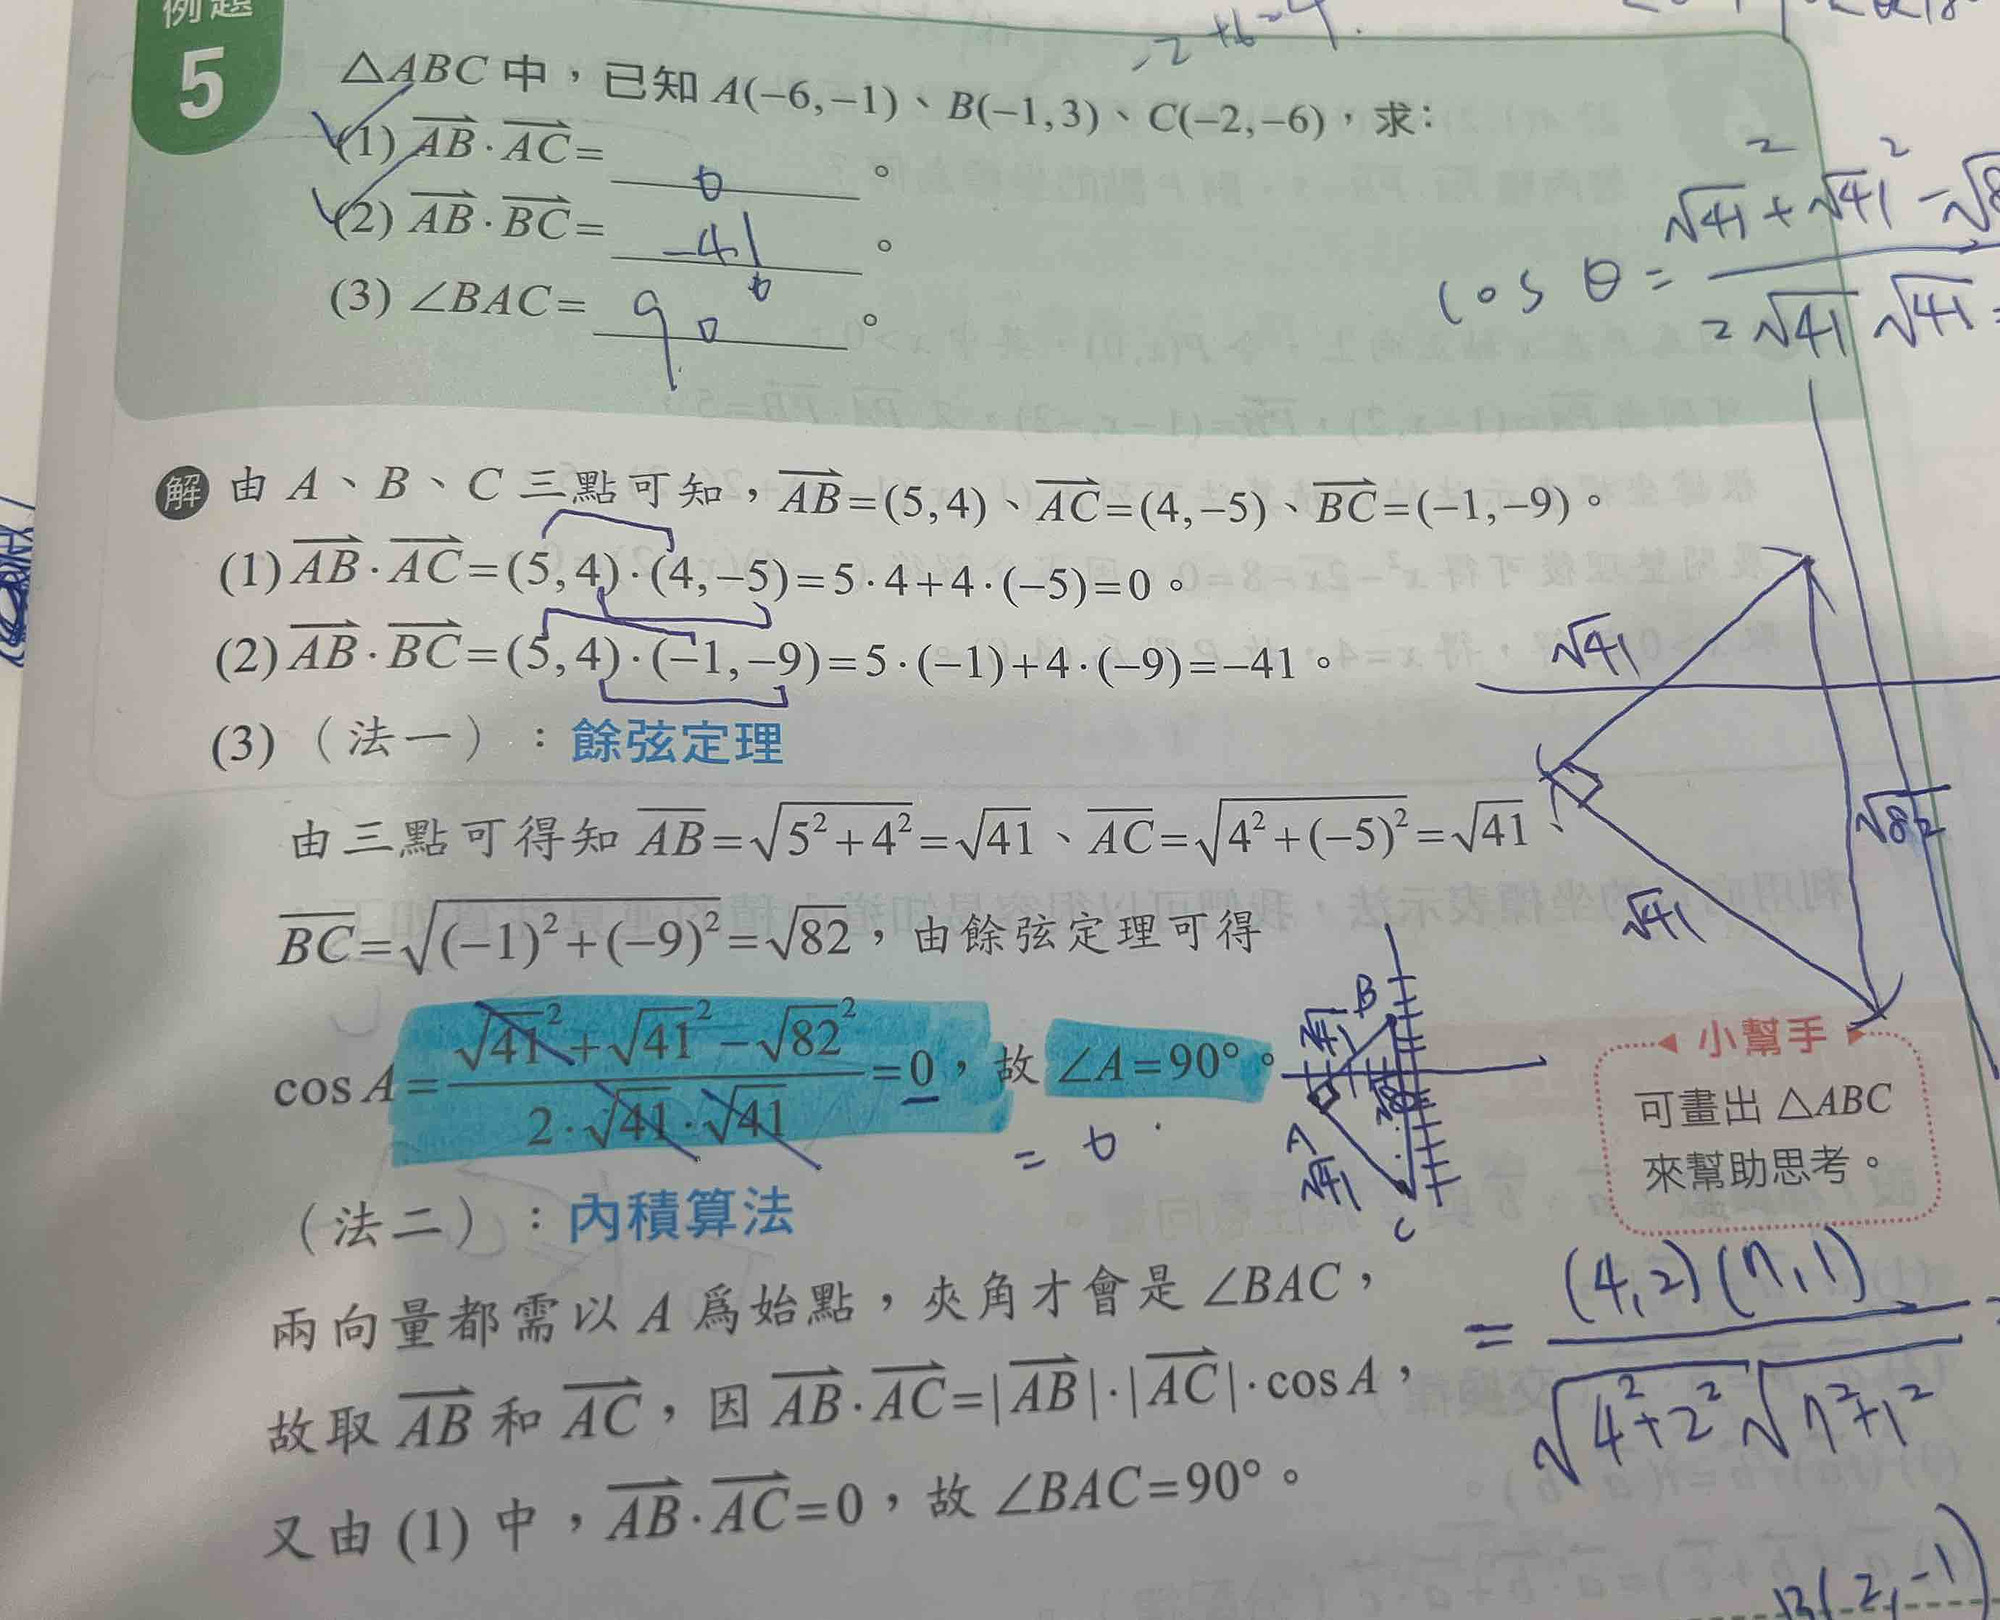 例題
5
△ABC 中，已知 A(−6,−1)、B(−1,3)、C(−2,−6)，求：
(1) AB⃗·AC⃗= 0 。
(2) AB⃗·BC⃗= −41 。
(3) ∠BAC= 90° 。
cos θ =
2√41 √41
解 由 A、B、C 三點可知，AB⃗=(5,4)、AC⃗=(4,−5)、BC⃗=(−1,−9)。
(1) AB⃗·AC⃗=(5,4)·(4,−5)=5·4+4·(−5)=0。
(2) AB⃗·BC⃗=(5,4)·(−1,−9)=5·(−1)+4·(−9)=−41。
(3)（法一）：餘弦定理
√41
√82
√41
由三點可得知 A̅B̅=√(5²+4²)=√41、A̅C̅=√(4²+(−5)²)=√41、
B̅C̅=√((−1)²+(−9)²)=√82，由餘弦定理可得
cos A=(√41²+√41²−√82²)/(2·√41·√41)=0，故 ∠A=90°。
= 0
B
√41
A
√41
C
小幫手
可畫出 △ABC
來幫助思考。
（法二）：內積算法
兩向量都需以 A 爲始點，夾角才會是 ∠BAC，
故取 AB⃗ 和 AC⃗，因 AB⃗·AC⃗=|AB⃗|·|AC⃗|·cos A，
又由 (1) 中，AB⃗·AC⃗=0，故 ∠BAC=90°。
= (4,2)(7,1)
√4²+2² √7²+1²
B(2,−1)